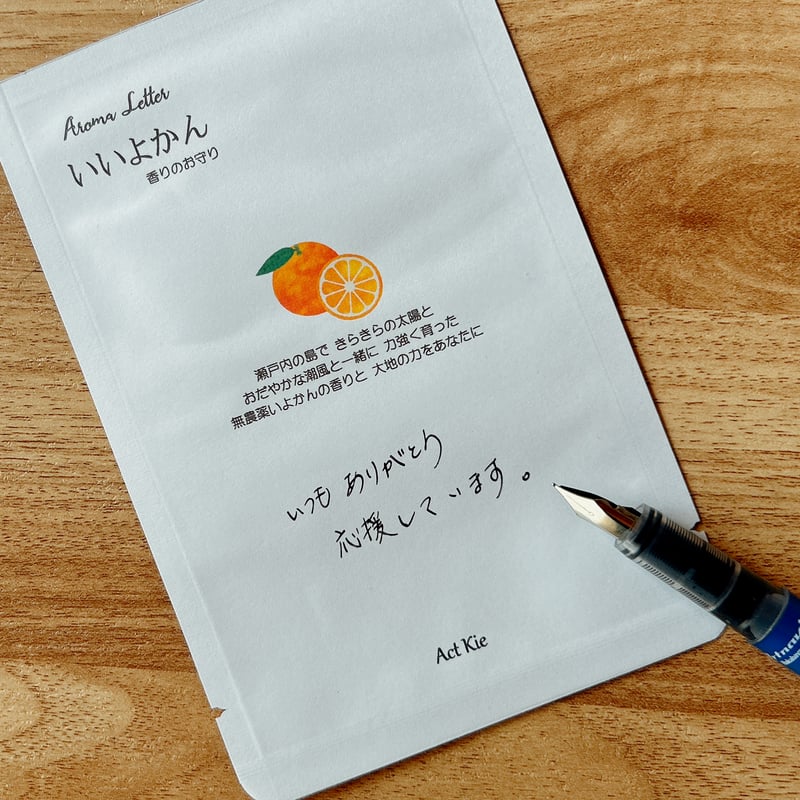 Aroma Letter
いいよかん
香りのお守り
瀬戸内の島で きらきらの太陽と
おだやかな潮風と一緒に 力強く育った
無農薬いよかんの香りと 大地の力をあなたに
いつも ありがとう
応援しています。
Act Kie